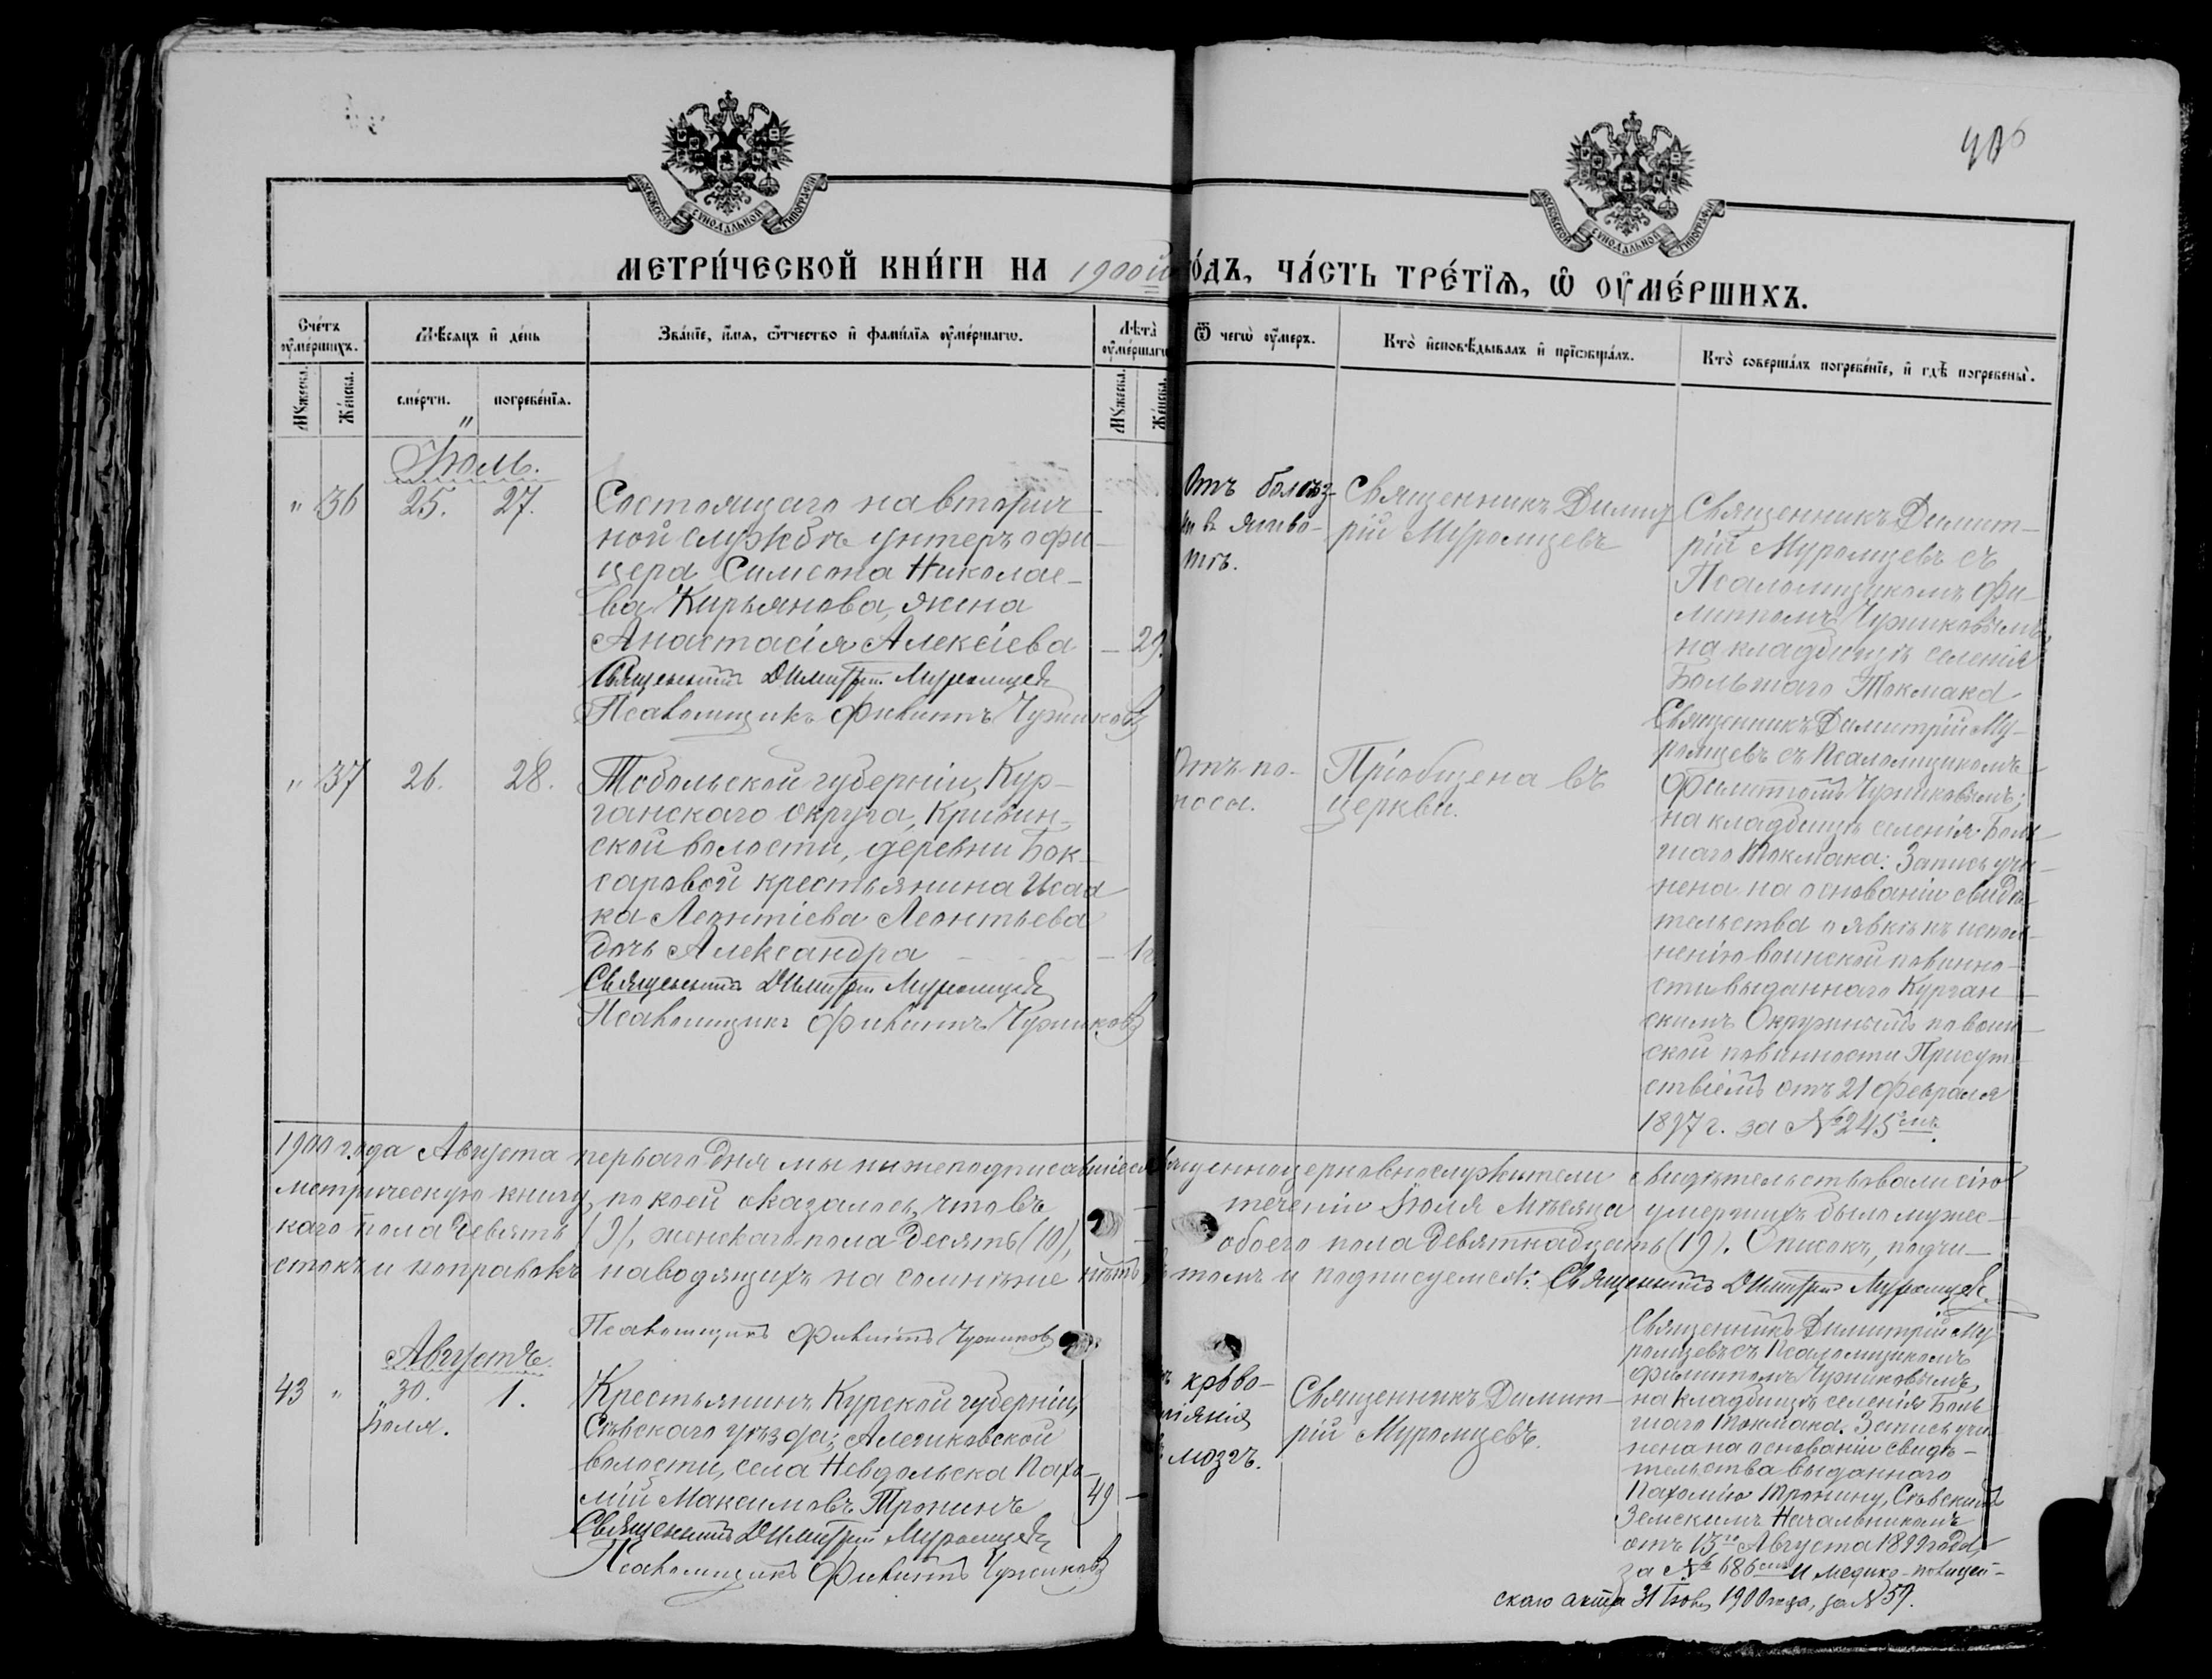 МОСКОВСКОЙ СѴНОДАЛЬНОЙ ТИПОГРАФІИ
МОСКОВСКОЙ СѴНОДАЛЬНОЙ ТИПОГРАФІИ
МЕТРИ́ЧЕСКОЙ КНИ́ГИ НА 1900й
О́ДЪ, ЧА́СТЬ ТРЕ́ТЇѦ, Ѡ҆ ОУ҆МЕ́РШИХЪ.
Сче́тъ оу҆ме́ршихъ.
Мѣ́сяцъ и҆ де́нь
Зва́нїе, и҆́мя, ѻ҆́тчество и҆ фами́лїя оу҆ме́ршагѡ.
Лѣта̀ оу҆ме́ршаго
Ѿ чегѡ̀ оу҆́меръ.
Кто̀ и҆сповѣ́дывалъ и҆ прїѡбща́лъ.
Кто̀ соверша́лъ погребе́нїе, и҆ гдѣ̀ погребены̀.
Мꙋ́жеска.
Же́нска.
сме́рти.
погребе́нїя.
Мꙋ́жеска.
Же́нска.
Іюль.
" 36 25. 27.
Состоящаго на вторич
ной службѣ унтеръ офи
цера Симеона Николае-
ва Кирьянова, жена
Анастасія Алексіева — 29.
Священникъ Димитрій Муромцевъ
Псаломщикъ Филиппъ Чужиковъ
Отъ болѣз-
ни въ живо-
тѣ.
Священникъ Димит
рій Муромцевъ
Священникъ Димит-
рій Муромцевъ съ
Псаломщикомъ Фи-
липпомъ Чужиковымъ
на кладбищѣ селенія
Большаго Токмака
" 37 26. 28.
Тобольской губерніи, Кур-
ганскаго округа, Кривин-
ской волости, деревни Бок-
саровой крестьянина Исаа
ка Леонтіева Леонтьева
дочь Александра — 1г.
Священникъ Димитрій Муромцевъ
Псаломщикъ Филиппъ Чужиковъ
Отъ по-
носа.
Пріобщена въ
церкви.
Священникъ Димитрій Му-
ромцевъ съ Псаломщикомъ
Филиппомъ Чужиковымъ;
на кладбищѣ селенія Боль-
шаго Токмака. Запись учи-
нена на основаніи свидѣ-
тельства о явкѣ къ испол-
ненію воинской повинно-
сти выданнаго Курган-
скимъ Окружнымъ по воин-
ской повинности Присут-
ствіемъ отъ 21 февраля
1897 г. за №245мъ.
1900 года Августа перваго дня мы нижеподписавшіеся священноцерковнослужители свидѣтельствовали сію
метрическую книгу, по коей оказалось, что въ теченіи Іюля мѣсяца умершихъ было мужес-
каго пола девять (9), женскаго пола десять (10), обоего пола девятнадцать (19). Описокъ, подчи-
стокъ и поправокъ наводящихъ на сомнѣніе нѣтъ, въ томъ и подписуемся: Священникъ Димитрій Муромцевъ
Псаломщикъ Филиппъ Чужиковъ
Августъ.
43 " 30. 1.
Іюля.
Крестьянинъ Курской губерніи,
Сѣвскаго уѣзда;
волости, села Невдольска Пахо-
мій Максимовъ Тронинъ 49 —
Священникъ Димитрій Муромцевъ
Псаломщикъ Филиппъ Чужиковъ
крово-
изліянія
мозгъ.
Священникъ Димит-
рій Муромцевъ.
Священникъ Димитрій Му
ромцевъ съ Псаломщикомъ
Филиппомъ Чужиковымъ,
на кладбищѣ селенія Боль
шаго Токмака. Запись учи
нена на основаніи свидѣ-
тельства выданнаго
Пахомію Тронину, Сѣвскимъ
Земскимъ Начальникомъ
отъ 13го Августа 1899 года,
за № 686 и медико-полицей-
скаго акта 31 Іюля 1900 года, за №57.